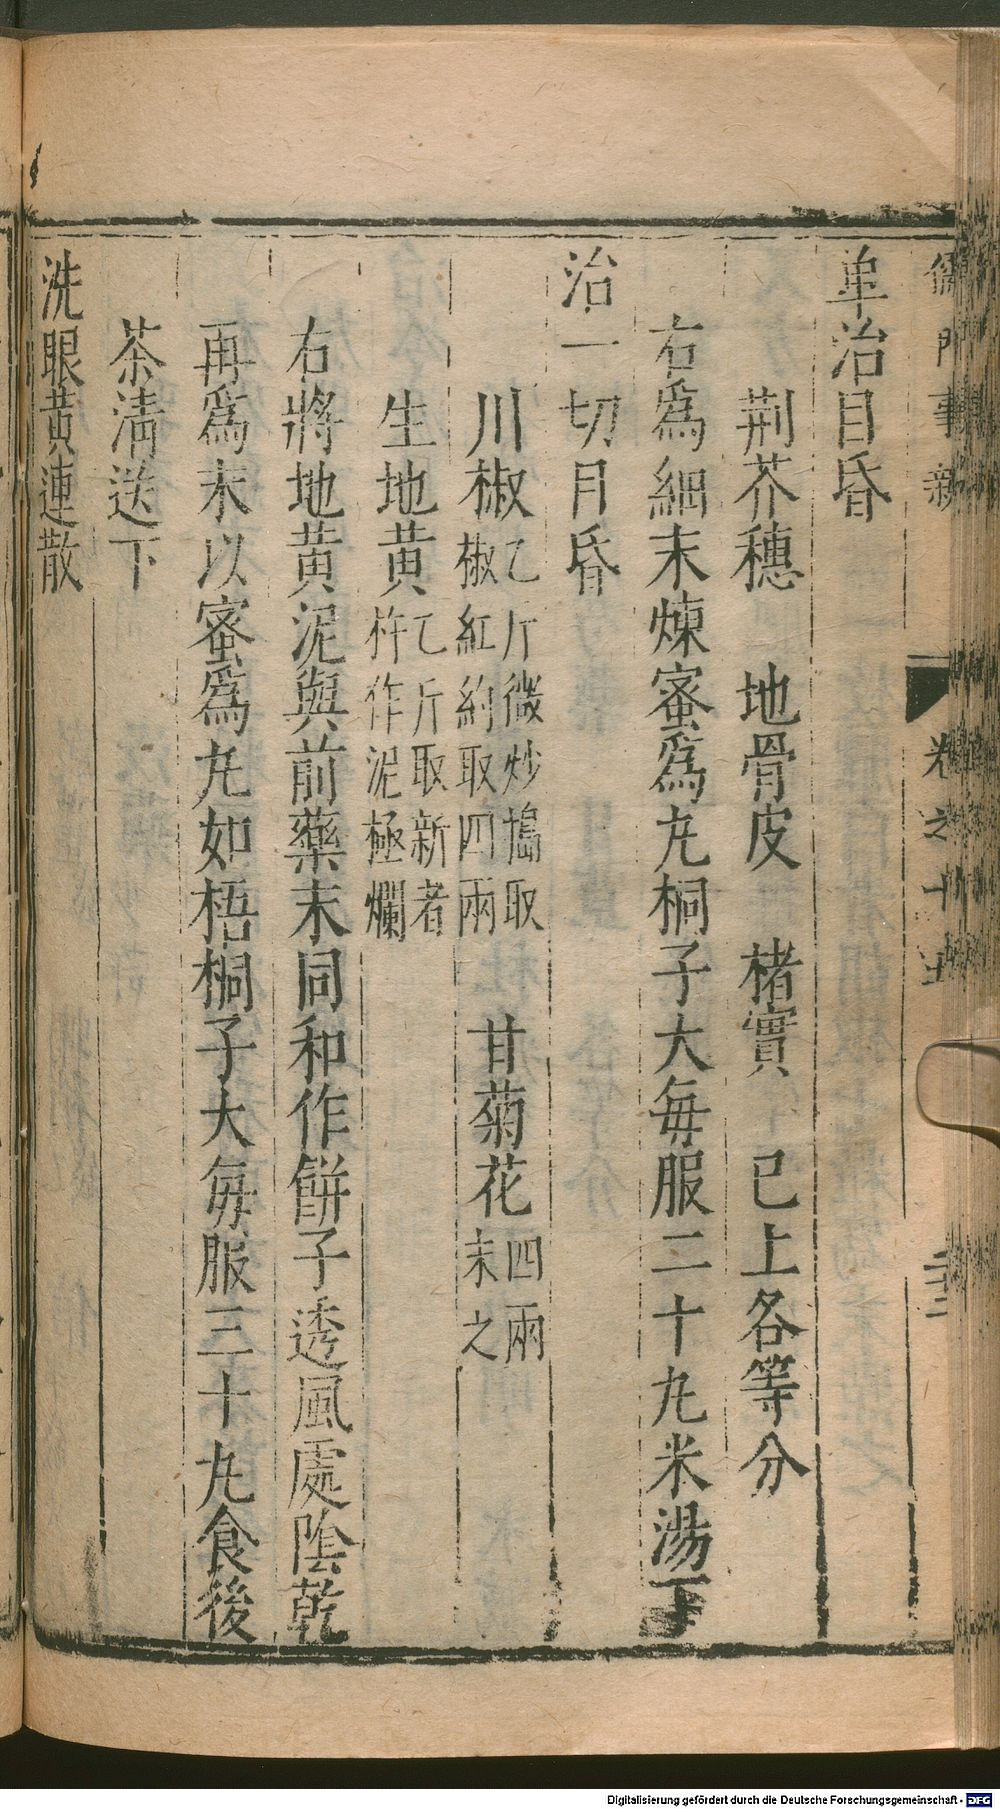 儒門事親 卷之十五 二十二
单治目昏
荆芥穗 地骨皮 楮實 已上各等分
右爲細末煉蜜爲丸桐子大每服二十九米湯下
治一切目昏
川椒 乙斤微炒搗取椒紅約取四兩 甘菊花 四兩末之
生地黄 乙斤取新者杵作泥極爛
右將地黄泥與前藥末同和作餅子透風處陰乾
再爲末以蜜爲丸如梧桐子大每服三十丸食後
茶清送下
洗眼黄連散
Digitalisierung gefördert durch die Deutsche Forschungsgemeinschaft - DFG